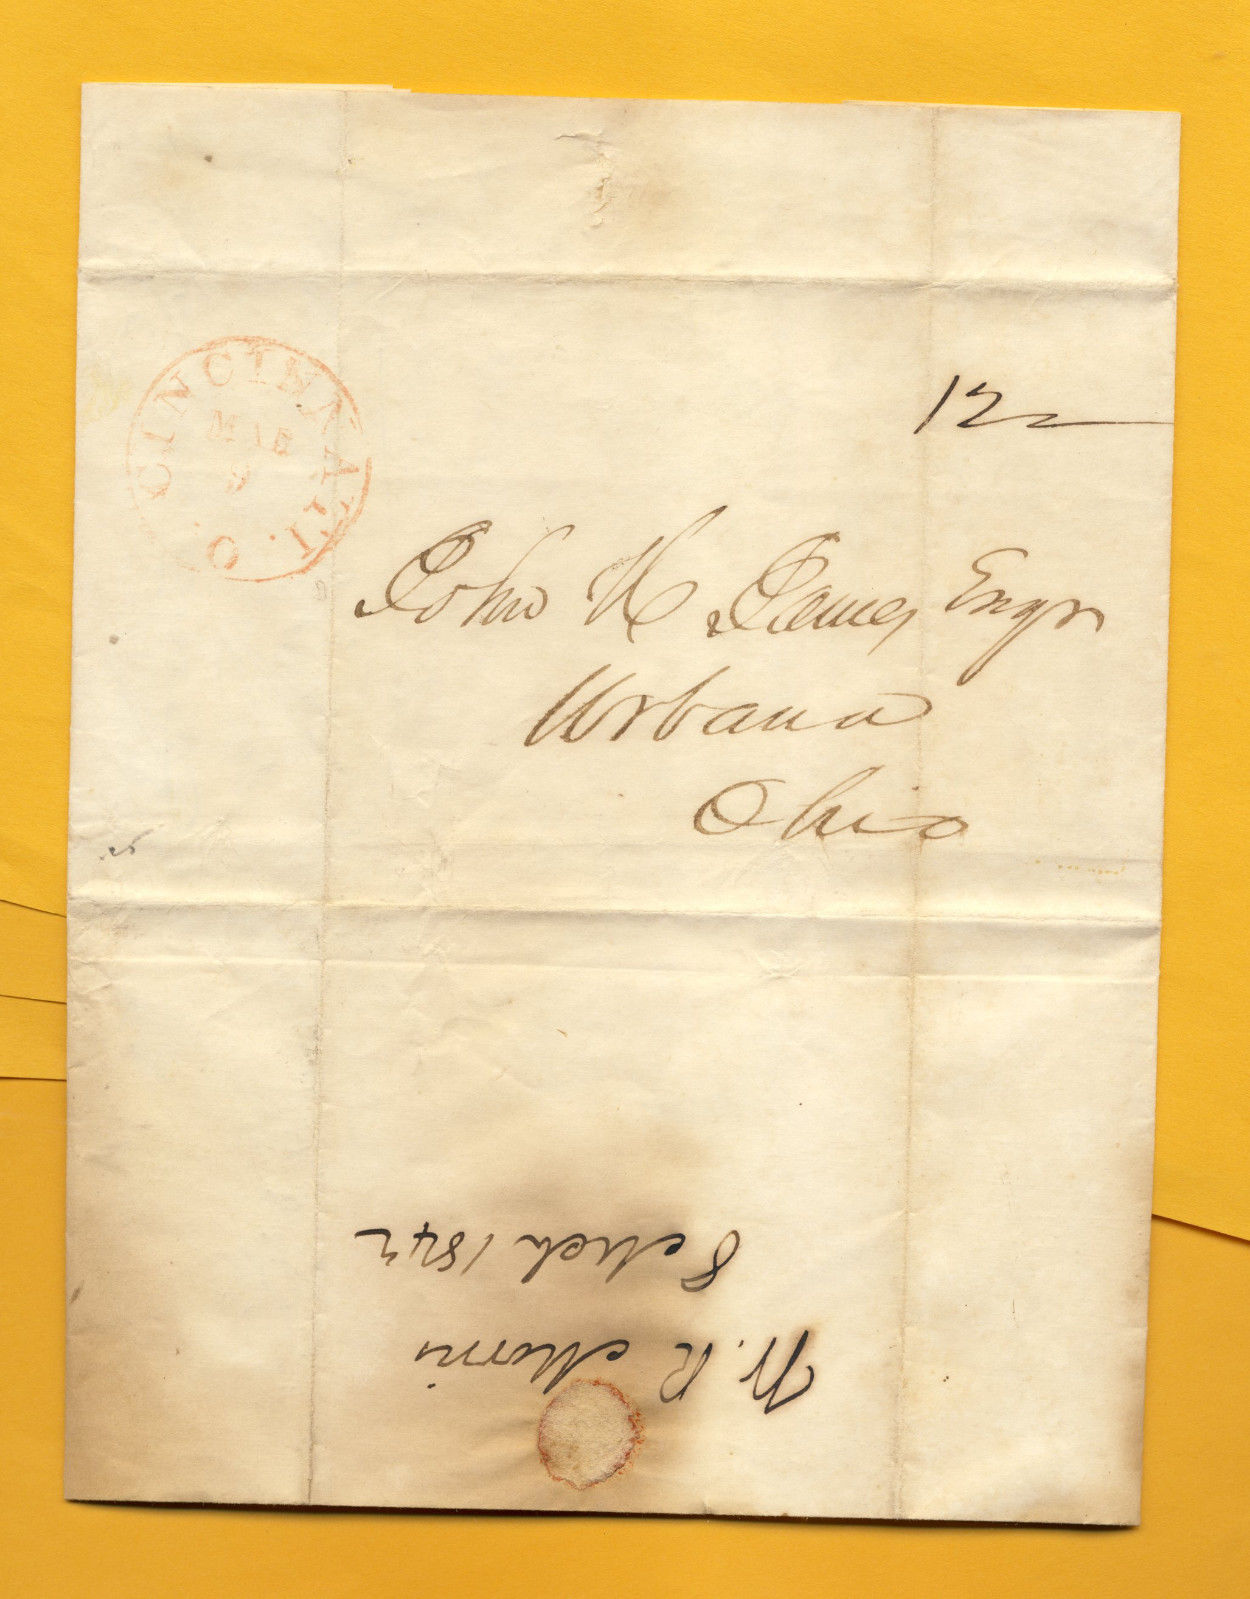 CINCINNATI. O.
MAR
9
12
John H James Esqr
Urbana
Ohio
W. R. Morris
8 Mch 1842